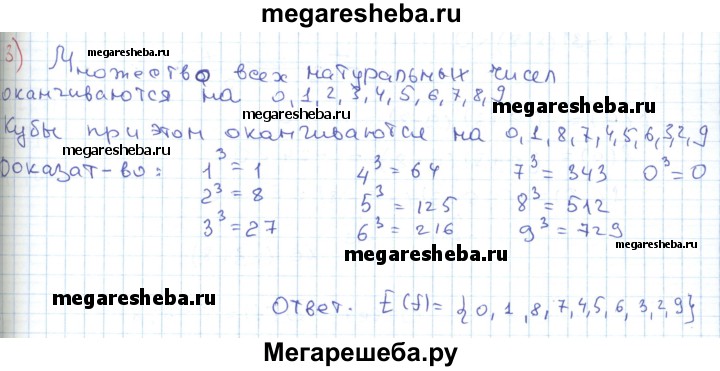 megaresheba.ru
3) Множество всех натуральных чисел
megaresheba.ru
оканчиваются на 0, 1, 2, 3, 4, 5, 6, 7, 8, 9
megaresheba.ru
Кубы при этом оканчиваются на 0, 1, 8, 7, 4, 5, 6, 3, 2, 9
megaresheba.ru
Доказат-во: 1³ = 1 4³ = 64 7³ = 343 0³ = 0
2³ = 8 5³ = 125 8³ = 512
3³ = 27 6³ = 216 9³ = 729
megaresheba.ru megaresheba.ru
megaresheba.ru
Ответ. E(f) = {0, 1, 8, 7, 4, 5, 6, 3, 2, 9}
megaresheba.ru
Мегарешеба.ру